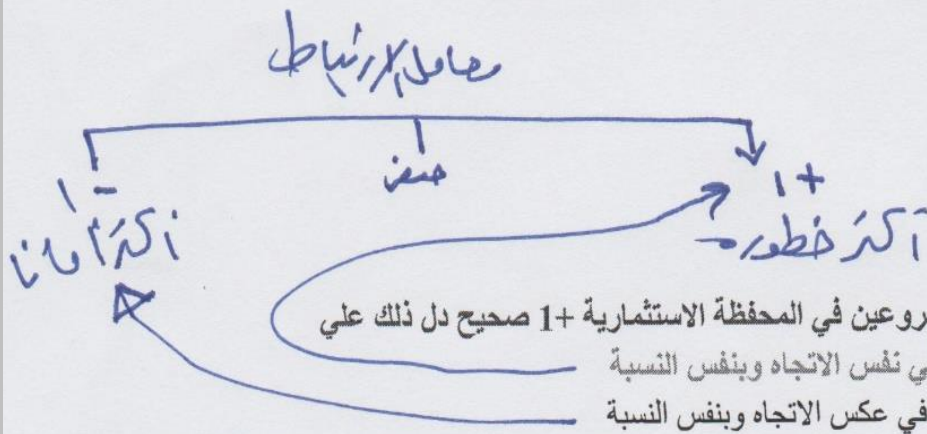 معامل الارتباط
+1 صفر -1
أكثر خطورة أكثر أمانا
روعين في المحفظة الاستثمارية +1 صحيح دل ذلك علي
ي نفس الاتجاه وبنفس النسبة
في عكس الاتجاه وبنفس النسبة